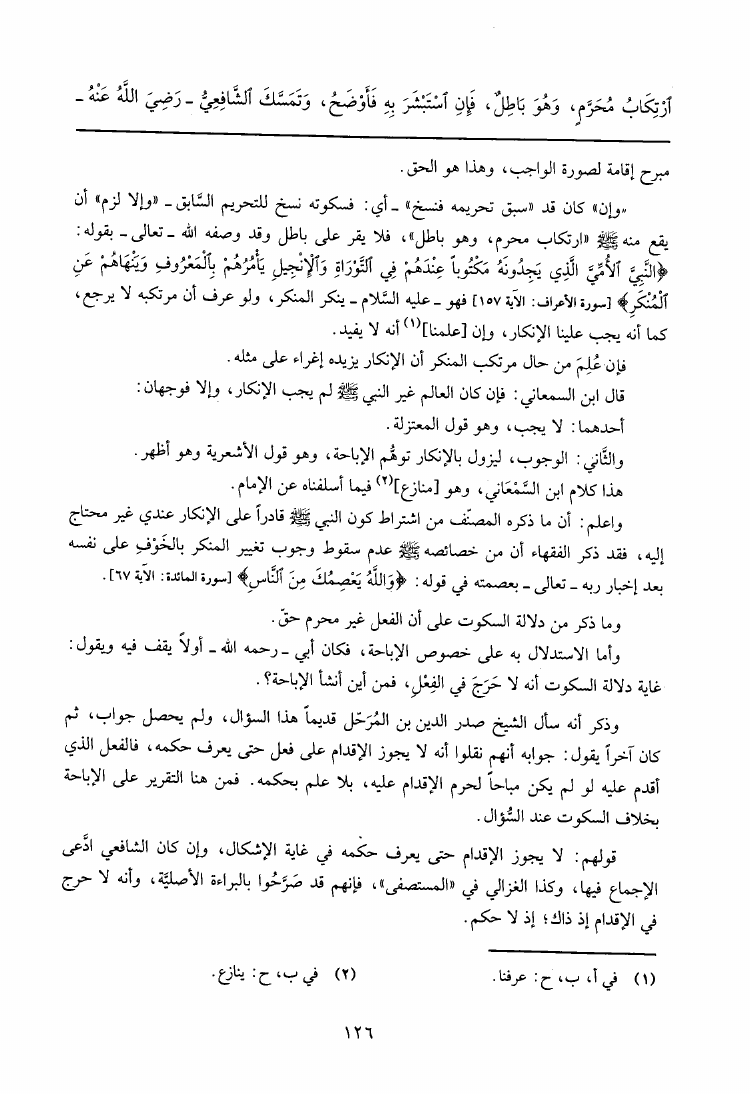 ٱرْتِكَابُ مُحَرَّمٍ، وَهُوَ بَاطِلٌ، فَإِنِ ٱسْتَبْشَرَ بِهِ فَأَوْضَحُ، وَتَمَسَّكَ ٱلشَّافِعِيُّ ـ رَضِيَ اللَّهُ عَنْهُ ـ
مبرح إقامة لصورة الواجب، وهذا هو الحق.
«وإن» كان قد «سبق تحريمه فنسخ» ـ أي: فسكوته نسخ للتحريم السَّابق ـ «وإلا لزم» أن
يقع منه ﷺ «ارتكاب محرم، وهو باطل»، فلا يقر على باطل وقد وصفه الله ـ تعالى ـ بقوله:
﴿النَّبِيَّ الأُمِّيَّ الَّذِي يَجِدُونَهُ مَكْتُوباً عِنْدَهُمْ فِي التَّوْرَاةِ وَٱلْإِنْجِيلِ يَأْمُرُهُمْ بِٱلْمَعْرُوفِ وَيَنْهَاهُمْ عَنِ
ٱلْمُنْكَرِ﴾ [سورة الأعراف: الآية ١٥٧] فهو ـ عليه السلام ـ ينكر المنكر، ولو عرف أن مرتكبه لا يرجع،
كما أنه يجب علينا الإنكار، وإن [علمنا](١) أنه لا يفيد.
فإن عُلِمَ من حال مرتكب المنكر أن الإنكار يزيده إغراء على مثله.
قال ابن السمعاني: فإن كان العالم غير النبي ﷺ لم يجب الإنكار، وإلا فوجهان:
أحدهما: لا يجب، وهو قول المعتزلة.
والثَّاني: الوجوب، ليزول بالإنكار توهُّم الإباحة، وهو قول الأشعرية وهو أظهر.
هذا كلام ابن السَّمْعَاني، وهو [منازع](٢) فيما أسلفناه عن الإمام.
واعلم: أن ما ذكره المصنّف من اشتراط كون النبي ﷺ قادراً على الإنكار عندي غير محتاج
إليه، فقد ذكر الفقهاء أن من خصائصه ﷺ عدم سقوط وجوب تغيير المنكر بالخَوْفِ على نفسه
بعد إخبار ربه ـ تعالى ـ بعصمته في قوله: ﴿وَاللَّهُ يَعْصِمُكَ مِنَ ٱلنَّاسِ﴾ [سورة المائدة: الآية ٦٧].
وما ذكر من دلالة السكوت على أن الفعل غير محرم حقّ.
وأما الاستدلال به على خصوص الإباحة، فكان أبي ـ رحمه الله ـ أولاً يقف فيه ويقول:
غاية دلالة السكوت أنه لا حَرَجَ في الفِعْلِ، فمن أين أنشأ الإباحة؟.
وذكر أنه سأل الشيخ صدر الدين بن المُرَحّل قديماً هذا السؤال، ولم يحصل جواب، ثم
كان آخراً يقول: جوابه أنهم نقلوا أنه لا يجوز الإقدام على فعل حتى يعرف حكمه، فالفعل الذي
أقدم عليه لو لم يكن مباحاً لحرم الإقدام عليه، بلا علم بحكمه. فمن هنا التقرير على الإباحة
بخلاف السكوت عند السُّؤال.
قولهم: لا يجوز الإقدام حتى يعرف حكمه في غاية الإشكال، وإن كان الشافعي ادَّعى
الإجماع فيها، وكذا الغزالي في «المستصفى»، فإنهم قد صَرَّحُوا بالبراءة الأصليَّة، وأنه لا حرج
في الإقدام إذ ذاك؛ إذ لا حكم.
(١) في أ، ب، ح: عرفنا.
(٢) في ب، ح: ينازع.
١٢٦